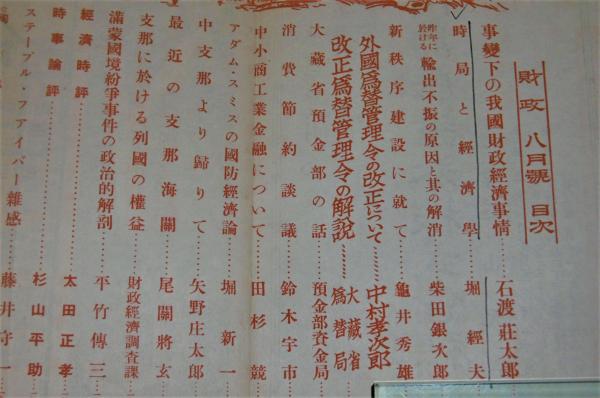 財政 八月號 目次
事變下の我國財政經濟事情……石渡莊太郎
時局と經濟學……堀經夫
昨年に於ける輸出不振の原因と其の解消……柴田銀次郎
新秩序建設に就て……龜井秀雄
外國爲替管理令の改正について……中村孝次郎
改正爲替管理令の解説……大藏省爲替局
大藏省預金部の話……預金部資金局
消費節約談議……鈴木宇市
中小商工業金融について……田杉競
アダム・スミスの國防經濟論……堀新一
中支那より歸りて……矢野庄太郎
最近の支那海關……尾關將玄
支那に於ける列國の權益……財政經濟調査課
滿蒙國境紛爭事件の政治的解剖……平竹傳三
經濟時評……太田正孝
時事論評……杉山平助
ステープル・ファイバー雜感……藤井守一